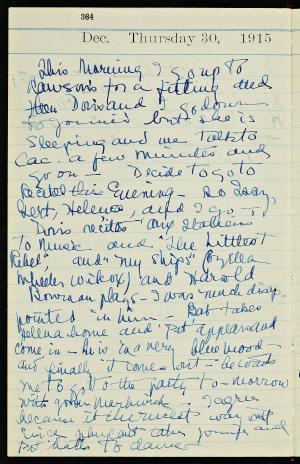 364
Dec. Thursday 30, 1915
This Morning I go up to
Dawson's for a fitting and
then Doris and I go down
to but she is
sleeping and we talk to
Cac. a few minutes and
go on — Decide to go to
recital this Evening — So Issy,
Gert, Helena, and I go —
Doris recites "
To Music and "The Littlest
Rebel", and "My Ships" by Ella
Wheeler Wilcox) and Harold
Bowman plays — I was much disap-
pointed in him — Bat takes
Helena home and Pat appears and
come in — he is in a very blue mood —
and finally it comes out — he wants
me to go to the party to-morrow
with John I agree
because it the nicest way out
since and
Pat hates to dance